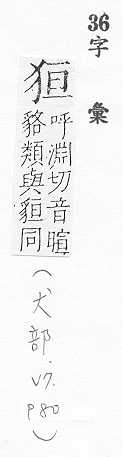 36字彙
狟
呼淵切音暄
貉類與貆同
(犬部.V7.P80)